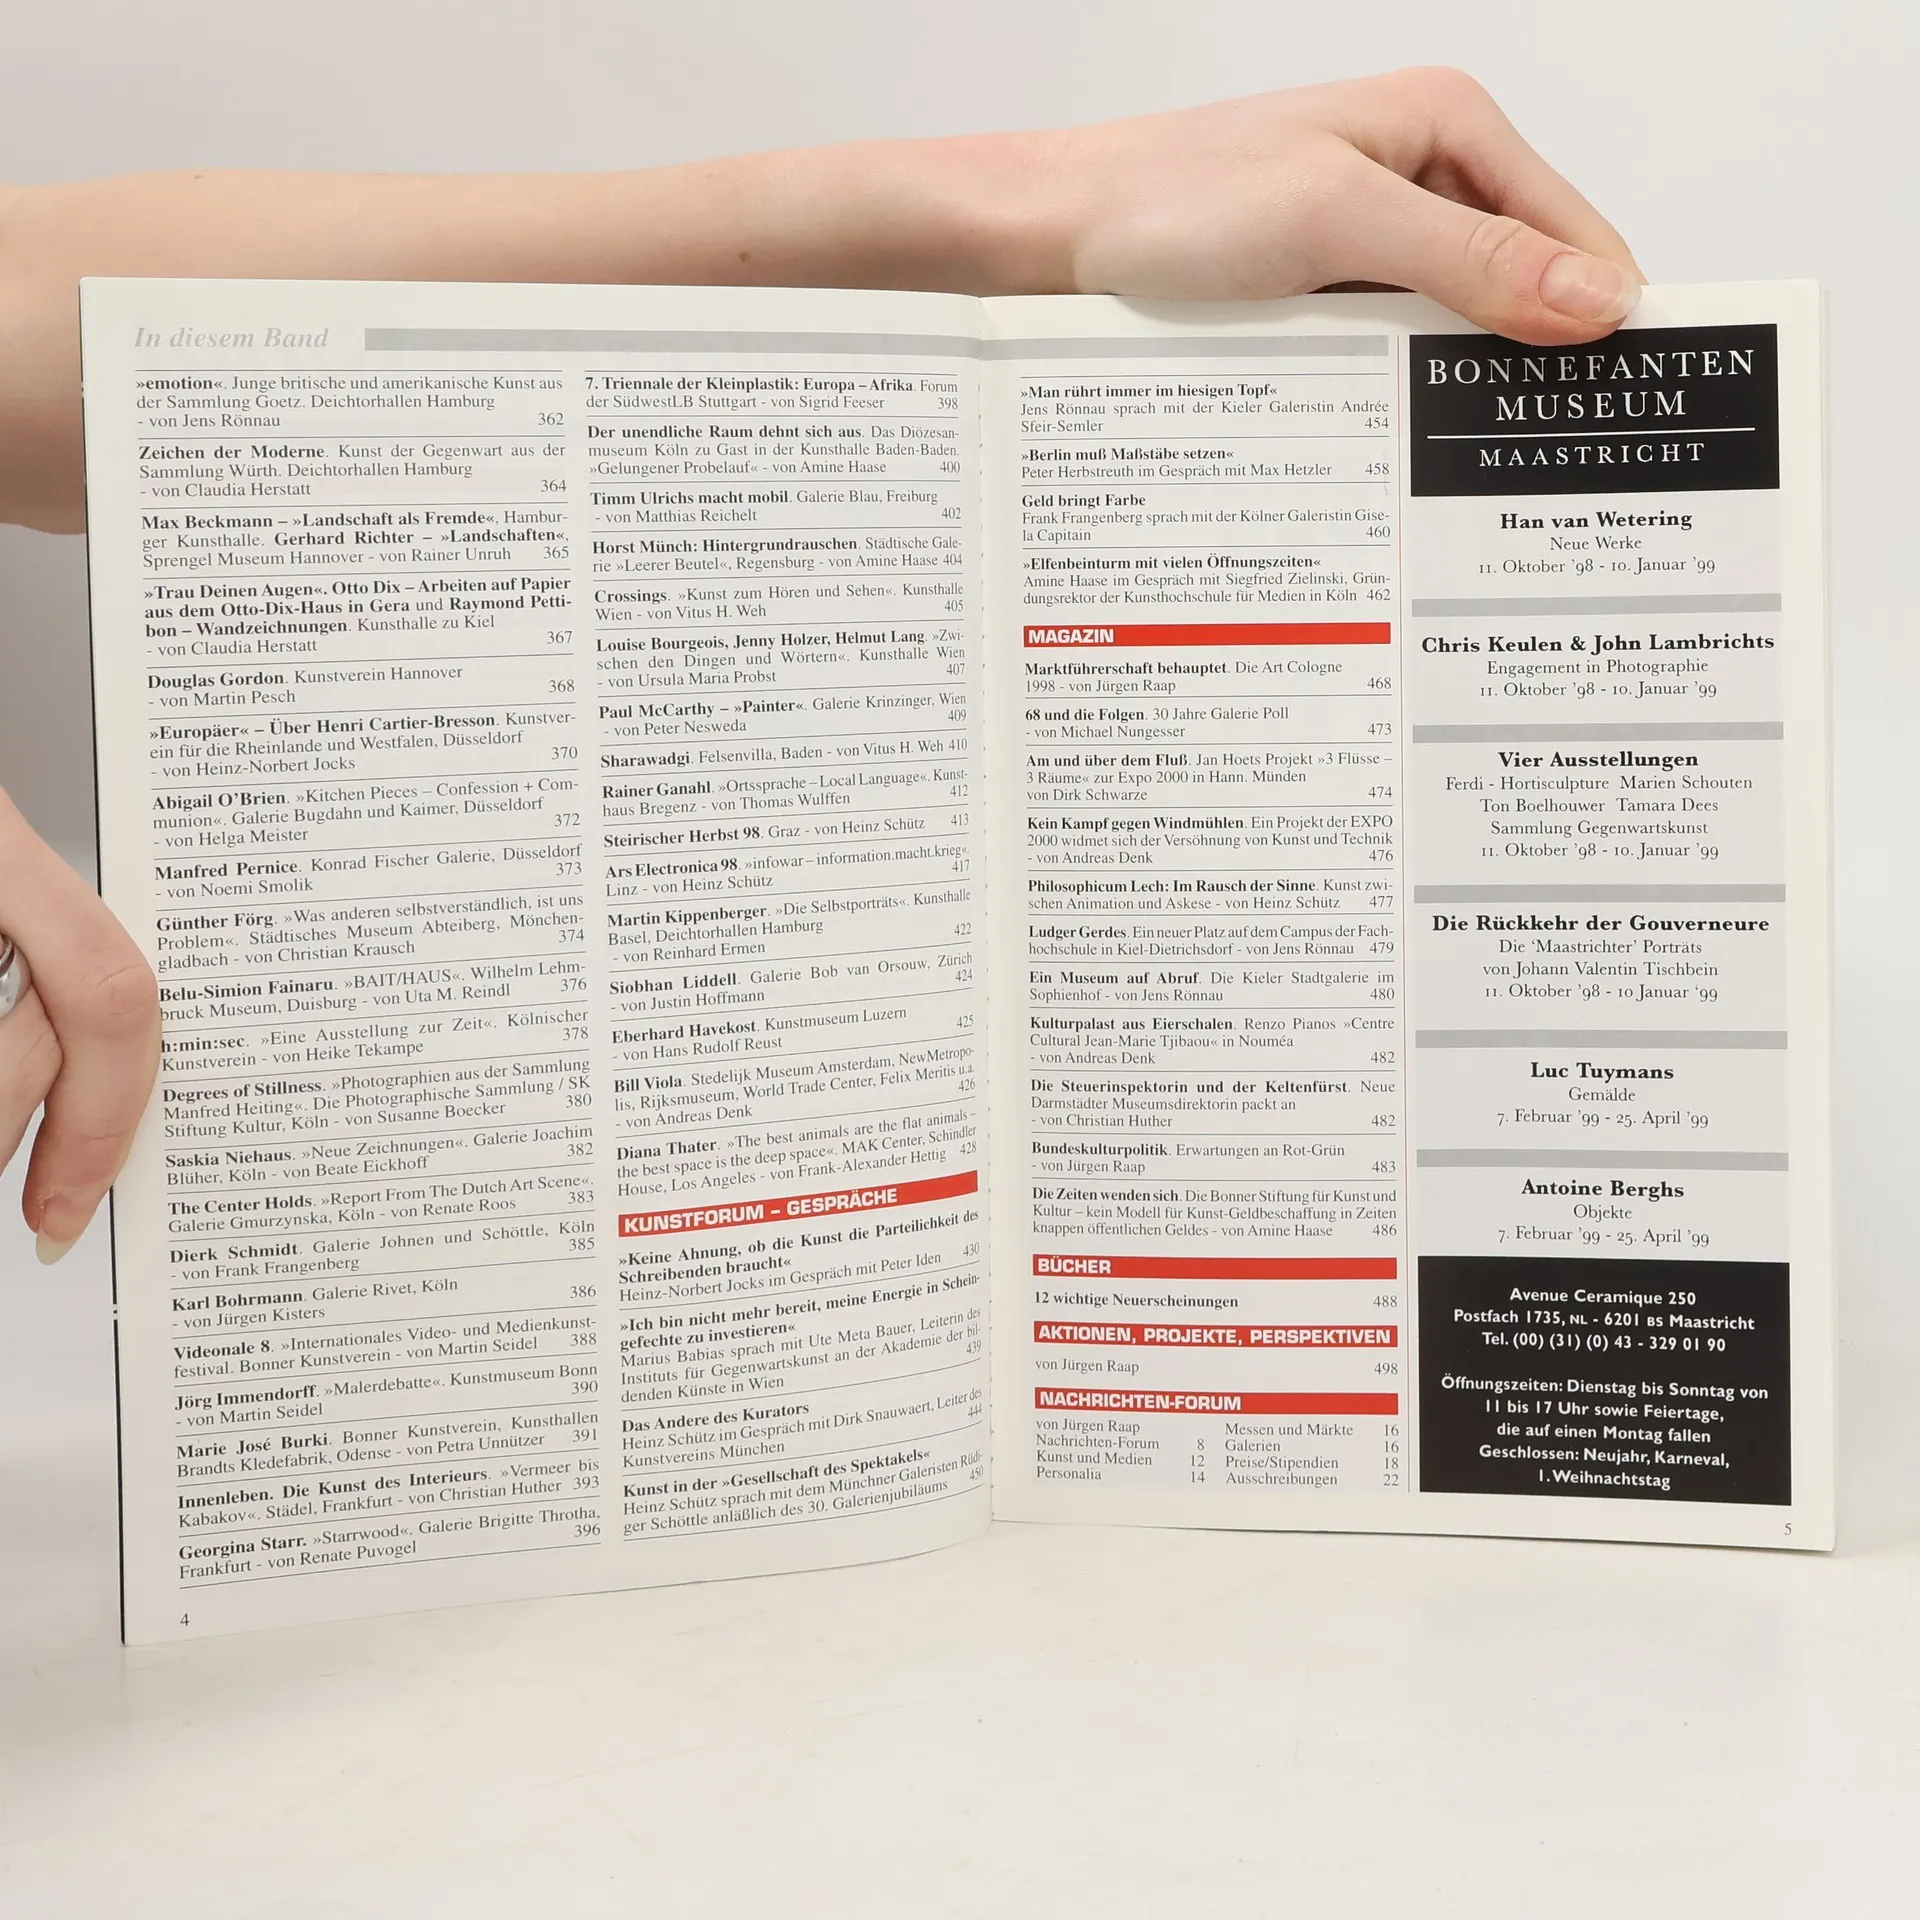 In diesem Band
»emotion«. Junge britische und amerikanische Kunst aus
der Sammlung Goetz. Deichtorhallen Hamburg
- von Jens Rönnau 362
Zeichen der Moderne. Kunst der Gegenwart aus der
Sammlung Würth. Deichtorhallen Hamburg
- von Claudia Herstatt 364
Max Beckmann – »Landschaft als Fremde«, Hambur-
ger Kunsthalle. Gerhard Richter – »Landschaften«,
Sprengel Museum Hannover - von Rainer Unruh 365
»Trau Deinen Augen«. Otto Dix – Arbeiten auf Papier
aus dem Otto-Dix-Haus in Gera und Raymond Petti-
bon – Wandzeichnungen. Kunsthalle zu Kiel
- von Claudia Herstatt 367
Douglas Gordon. Kunstverein Hannover
- von Martin Pesch 368
»Europäer« – Über Henri Cartier-Bresson. Kunstver-
ein für die Rheinlande und Westfalen, Düsseldorf
- von Heinz-Norbert Jocks 370
Abigail O'Brien. »Kitchen Pieces – Confession + Com-
munion«. Galerie Bugdahn und Kaimer, Düsseldorf
- von Helga Meister 372
Manfred Pernice. Konrad Fischer Galerie, Düsseldorf
- von Noemi Smolik 373
Günther Förg. »Was anderen selbstverständlich, ist uns
Problem«. Städtisches Museum Abteiberg, Mönchen-
gladbach - von Christian Krausch 374
Belu-Simion Fainaru. »BAIT/HAUS«. Wilhelm Lehm-
bruck Museum, Duisburg - von Uta M. Reindl 376
h:min:sec. »Eine Ausstellung zur Zeit«. Kölnischer
Kunstverein - von Heike Tekampe 378
Degrees of Stillness. »Photographien aus der Sammlung
Manfred Heiting«. Die Photographische Sammlung / SK
Stiftung Kultur, Köln - von Susanne Boecker 380
Saskia Niehaus. »Neue Zeichnungen«. Galerie Joachim
Blüher, Köln - von Beate Eickhoff 382
The Center Holds. »Report From The Dutch Art Scene«.
Galerie Gmurzynska, Köln - von Renate Roos 383
Dierk Schmidt. Galerie Johnen und Schöttle, Köln
- von Frank Frangenberg 385
Karl Bohrmann. Galerie Rivet, Köln
- von Jürgen Kisters 386
Videonale 8. »Internationales Video- und Medienkunst-
festival. Bonner Kunstverein - von Martin Seidel 388
Jörg Immendorff. »Malerdebatte«. Kunstmuseum Bonn
- von Martin Seidel 390
Marie José Burki. Bonner Kunstverein, Kunsthallen
Brandts Kledefabrik, Odense - von Petra Unnützer 391
Innenleben. Die Kunst des Interieurs. »Vermeer bis
Kabakov«. Städel, Frankfurt - von Christian Huther 393
Georgina Starr. »Starrwood«. Galerie Brigitte Throtha,
Frankfurt - von Renate Puvogel 396
4
7. Triennale der Kleinplastik: Europa – Afrika. Forum
der SüdwestLB Stuttgart - von Sigrid Feeser 398
Der unendliche Raum dehnt sich aus. Das Diözesan-
museum Köln zu Gast in der Kunsthalle Baden-Baden.
»Gelungener Probelauf« - von Amine Haase 400
Timm Ulrichs macht mobil. Galerie Blau, Freiburg
- von Matthias Reichelt 402
Horst Münch: Hintergrundrauschen. Städtische Gale-
rie »Leerer Beutel«, Regensburg - von Amine Haase 404
Crossings. »Kunst zum Hören und Sehen«. Kunsthalle
Wien - von Vitus H. Weh 405
Louise Bourgeois, Jenny Holzer, Helmut Lang. »Zwi-
schen den Dingen und Wörtern«. Kunsthalle Wien
- von Ursula Maria Probst 407
Paul McCarthy – »Painter«. Galerie Krinzinger, Wien
- von Peter Nesweda 409
Sharawadgi. Felsenvilla, Baden - von Vitus H. Weh 410
Rainer Ganahl. »Ortssprache – Local Language«. Kunst-
haus Bregenz - von Thomas Wulffen 412
Steirischer Herbst 98. Graz - von Heinz Schütz 413
Ars Electronica 98. »infowar – information.macht.krieg«.
Linz - von Heinz Schütz 417
Martin Kippenberger. »Die Selbstporträts«. Kunsthalle
Basel, Deichtorhallen Hamburg
- von Reinhard Ermen 422
Siobhan Liddell. Galerie Bob van Orsouw, Zürich
- von Justin Hoffmann 424
Eberhard Havekost. Kunstmuseum Luzern
- von Hans Rudolf Reust 425
Bill Viola. Stedelijk Museum Amsterdam, NewMetropo-
lis, Rijksmuseum, World Trade Center, Felix Meritis u.a.
- von Andreas Denk 426
Diana Thater. »The best animals are the flat animals –
the best space is the deep space«. MAK Center, Schindler
House, Los Angeles - von Frank-Alexander Hettig 428
KUNSTFORUM – GESPRÄCHE
»Keine Ahnung, ob die Kunst die Parteilichkeit des
Schreibenden braucht«
Heinz-Norbert Jocks im Gespräch mit Peter Iden 430
»Ich bin nicht mehr bereit, meine Energie in Schein-
gefechte zu investieren«
Marius Babias sprach mit Ute Meta Bauer, Leiterin des
Instituts für Gegenwartskunst an der Akademie der bil-
denden Künste in Wien 439
Das Andere des Kurators
Heinz Schütz im Gespräch mit Dirk Snauwaert, Leiter des
Kunstvereins München 444
Kunst in der »Gesellschaft des Spektakels«
Heinz Schütz sprach mit dem Münchner Galeristen Rüdi-
ger Schöttle anläßlich des 30. Galerienjubiläums 450
»Man rührt immer im hiesigen Topf«
Jens Rönnau sprach mit der Kieler Galeristin Andrée
Sfeir-Semler 454
»Berlin muß Maßstäbe setzen«
Peter Herbstreuth im Gespräch mit Max Hetzler 458
Geld bringt Farbe
Frank Frangenberg sprach mit der Kölner Galeristin Gise-
la Capitain 460
»Elfenbeinturm mit vielen Öffnungszeiten«
Amine Haase im Gespräch mit Siegfried Zielinski, Grün-
dungsrektor der Kunsthochschule für Medien in Köln 462
MAGAZIN
Marktführerschaft behauptet. Die Art Cologne
1998 - von Jürgen Raap 468
68 und die Folgen. 30 Jahre Galerie Poll
- von Michael Nungesser 473
Am und über dem Fluß. Jan Hoets Projekt »3 Flüsse –
3 Räume« zur Expo 2000 in Hann. Münden
von Dirk Schwarze 474
Kein Kampf gegen Windmühlen. Ein Projekt der EXPO
2000 widmet sich der Versöhnung von Kunst und Technik
- von Andreas Denk 476
Philosophicum Lech: Im Rausch der Sinne. Kunst zwi-
schen Animation und Askese - von Heinz Schütz 477
Ludger Gerdes. Ein neuer Platz auf dem Campus der Fach-
hochschule in Kiel-Dietrichsdorf - von Jens Rönnau 479
Ein Museum auf Abruf. Die Kieler Stadtgalerie im
Sophienhof - von Jens Rönnau 480
Kulturpalast aus Eierschalen. Renzo Pianos »Centre
Cultural Jean-Marie Tjibaou« in Nouméa
- von Andreas Denk 482
Die Steuerinspektorin und der Keltenfürst. Neue
Darmstädter Museumsdirektorin packt an
- von Christian Huther 482
Bundeskulturpolitik. Erwartungen an Rot-Grün
- von Jürgen Raap 483
Die Zeiten wenden sich. Die Bonner Stiftung für Kunst und
Kultur – kein Modell für Kunst-Geldbeschaffung in Zeiten
knappen öffentlichen Geldes - von Amine Haase 486
BÜCHER
12 wichtige Neuerscheinungen 488
AKTIONEN, PROJEKTE, PERSPEKTIVEN
von Jürgen Raap 498
NACHRICHTEN-FORUM
von Jürgen Raap
Nachrichten-Forum 8
Kunst und Medien 12
Personalia 14
Messen und Märkte 16
Galerien 16
Preise/Stipendien 18
Ausschreibungen 22
BONNEFANTEN
MUSEUM
MAASTRICHT
Han van Wetering
Neue Werke
11. Oktober '98 - 10. Januar '99
Chris Keulen & John Lambrichts
Engagement in Photographie
11. Oktober '98 - 10. Januar '99
Vier Ausstellungen
Ferdi - Hortisculpture Marien Schouten
Ton Boelhouwer Tamara Dees
Sammlung Gegenwartskunst
11. Oktober '98 - 10. Januar '99
Die Rückkehr der Gouverneure
Die 'Maastrichter' Porträts
von Johann Valentin Tischbein
11. Oktober '98 - 10 Januar '99
Luc Tuymans
Gemälde
7. Februar '99 - 25. April '99
Antoine Berghs
Objekte
7. Februar '99 - 25. April '99
Avenue Ceramique 250
Postfach 1735, NL - 6201 BS Maastricht
Tel. (00) (31) (0) 43 - 329 01 90
Öffnungszeiten: Dienstag bis Sonntag von
11 bis 17 Uhr sowie Feiertage,
die auf einen Montag fallen
Geschlossen: Neujahr, Karneval,
1. Weihnachtstag
5